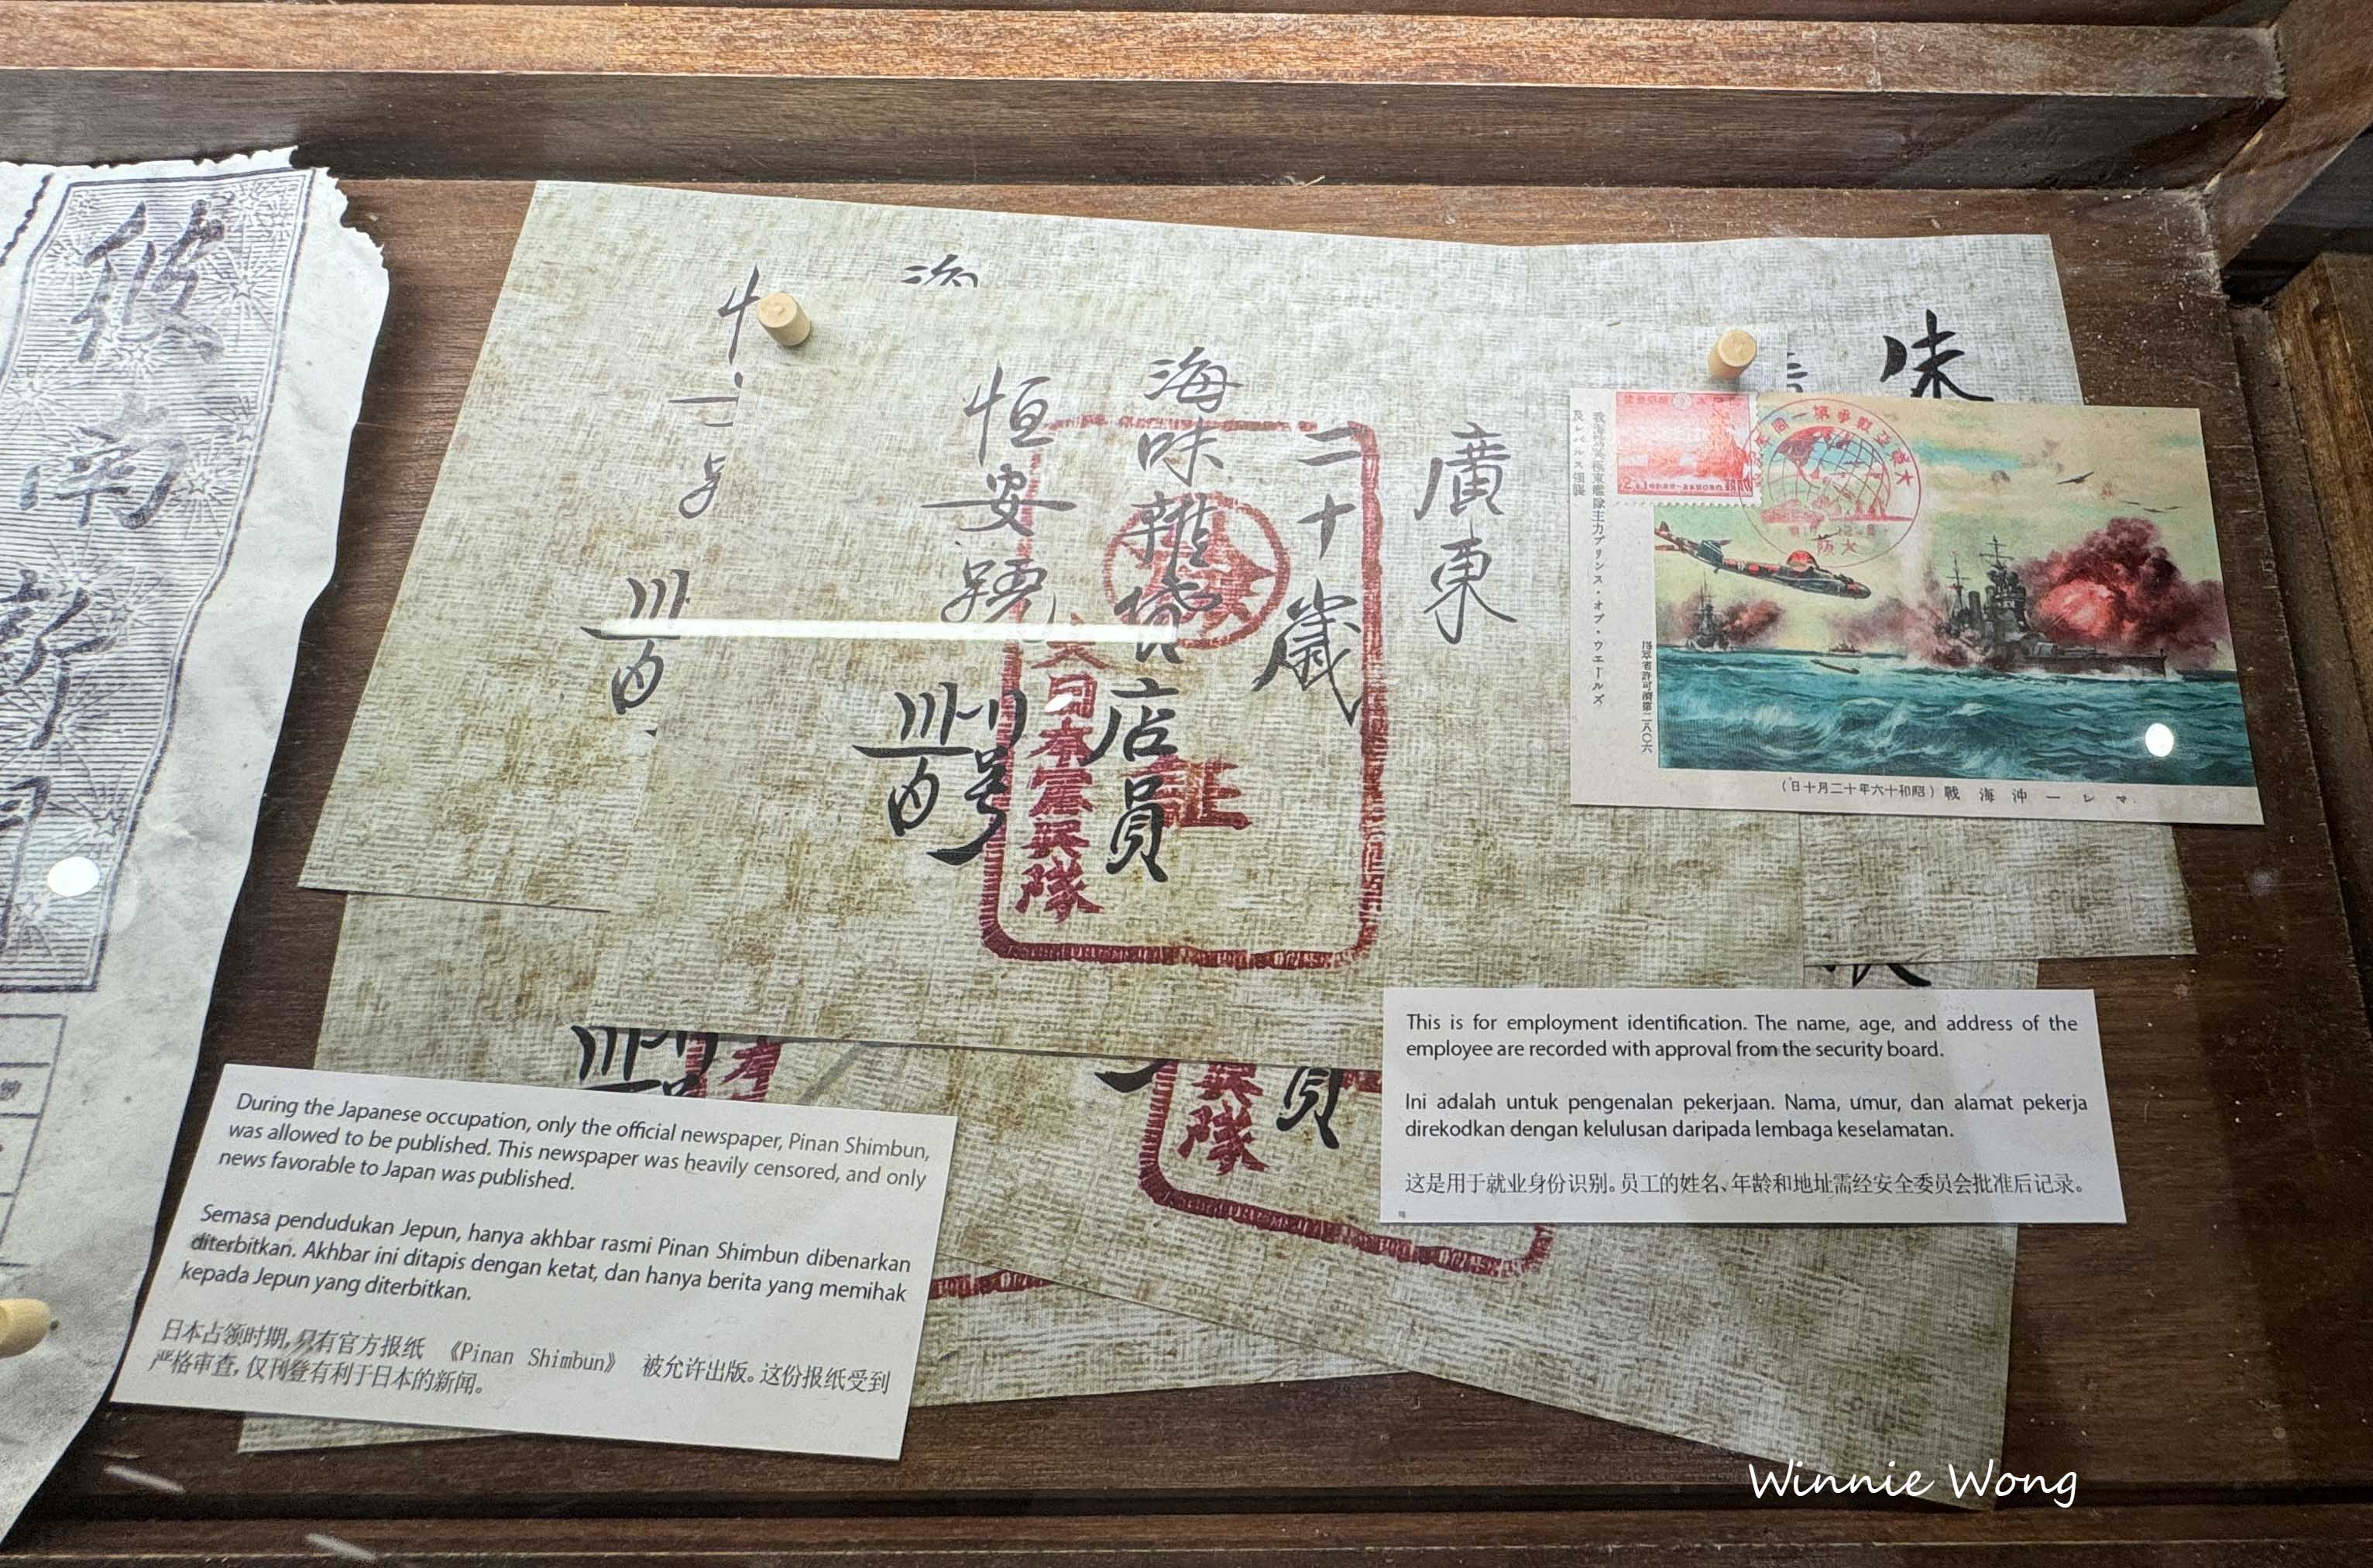 彼
南
新
廣東
二十歲
海味雜貨店員
恒安號
号
証
大日本憲兵隊
味
兵隊
員
大東亞戰爭第一周年
大阪
プリンス・オブ・ウエールズ
マレー沖海戰(昭和十六年十二月十日)
During the Japanese occupation, only the official newspaper, Pinan Shimbun,
was allowed to be published. This newspaper was heavily censored, and only
news favorable to Japan was published.
Semasa pendudukan Jepun, hanya akhbar rasmi Pinan Shimbun dibenarkan
diterbitkan. Akhbar ini ditapis dengan ketat, dan hanya berita yang memihak
kepada Jepun yang diterbitkan.
日本占领时期,只有官方报纸 《Pinan Shimbun》 被允许出版。这份报纸受到
严格审查,仅刊登有利于日本的新闻。
This is for employment identification. The name, age, and address of the
employee are recorded with approval from the security board.
Ini adalah untuk pengenalan pekerjaan. Nama, umur, dan alamat pekerja
direkodkan dengan kelulusan daripada lembaga keselamatan.
这是用于就业身份识别。员工的姓名、年龄和地址需经安全委员会批准后记录。
Winnie Wong